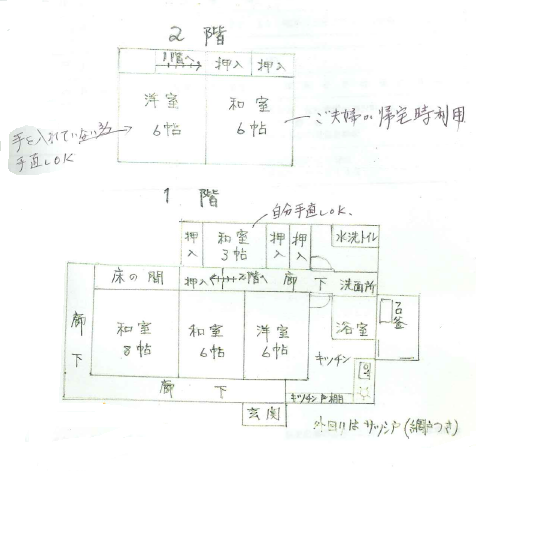 2 階
1階へ 押入 押入
洋室 和室
6帖 6帖
ご夫婦の帰宅時利用
手を入れていない
手直しOK
1 階
自分手直しOK.
押入 和室 押入 押入 水洗トイレ
3帖
床の間 押入 2階へ 廊下 洗面所
廊下 和室 和室 洋室 浴室 石釜
8帖 6帖 6帖
キッチン
廊下 キッチン戸棚
玄関
外回りはサッシ戸(網戸つき)